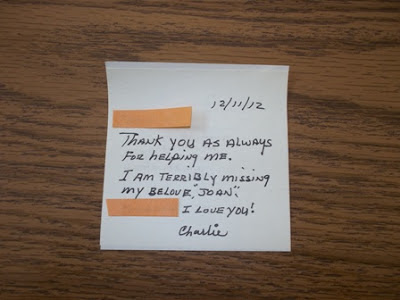 12/11/12
THANK YOU AS ALWAYS
FOR HELPING ME.
I AM TERRIBLY MISSING
MY BELOVE, "JOAN".
I LOVE YOU!
Charlie